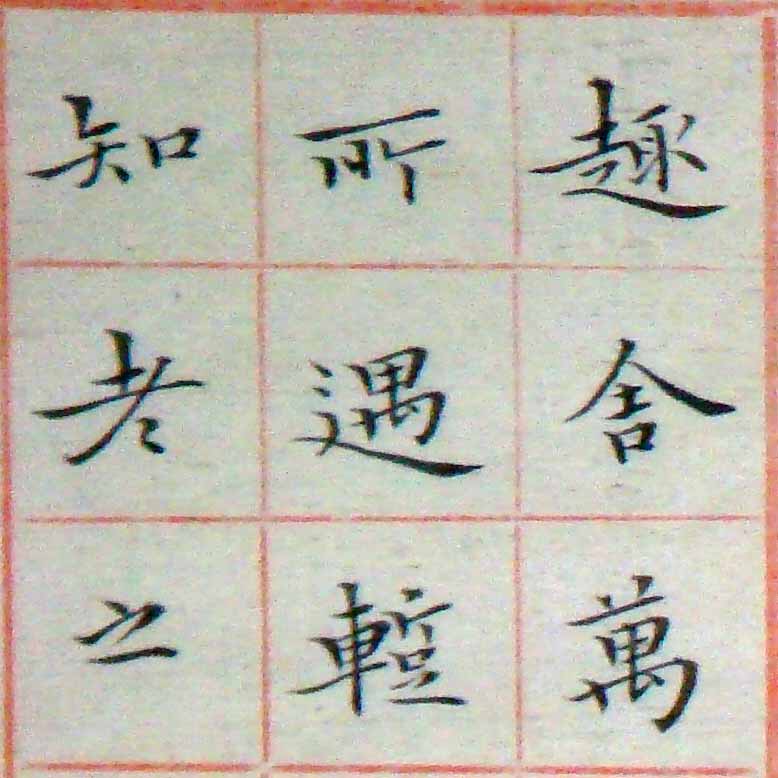 趣舍萬
所遇暫
知老之